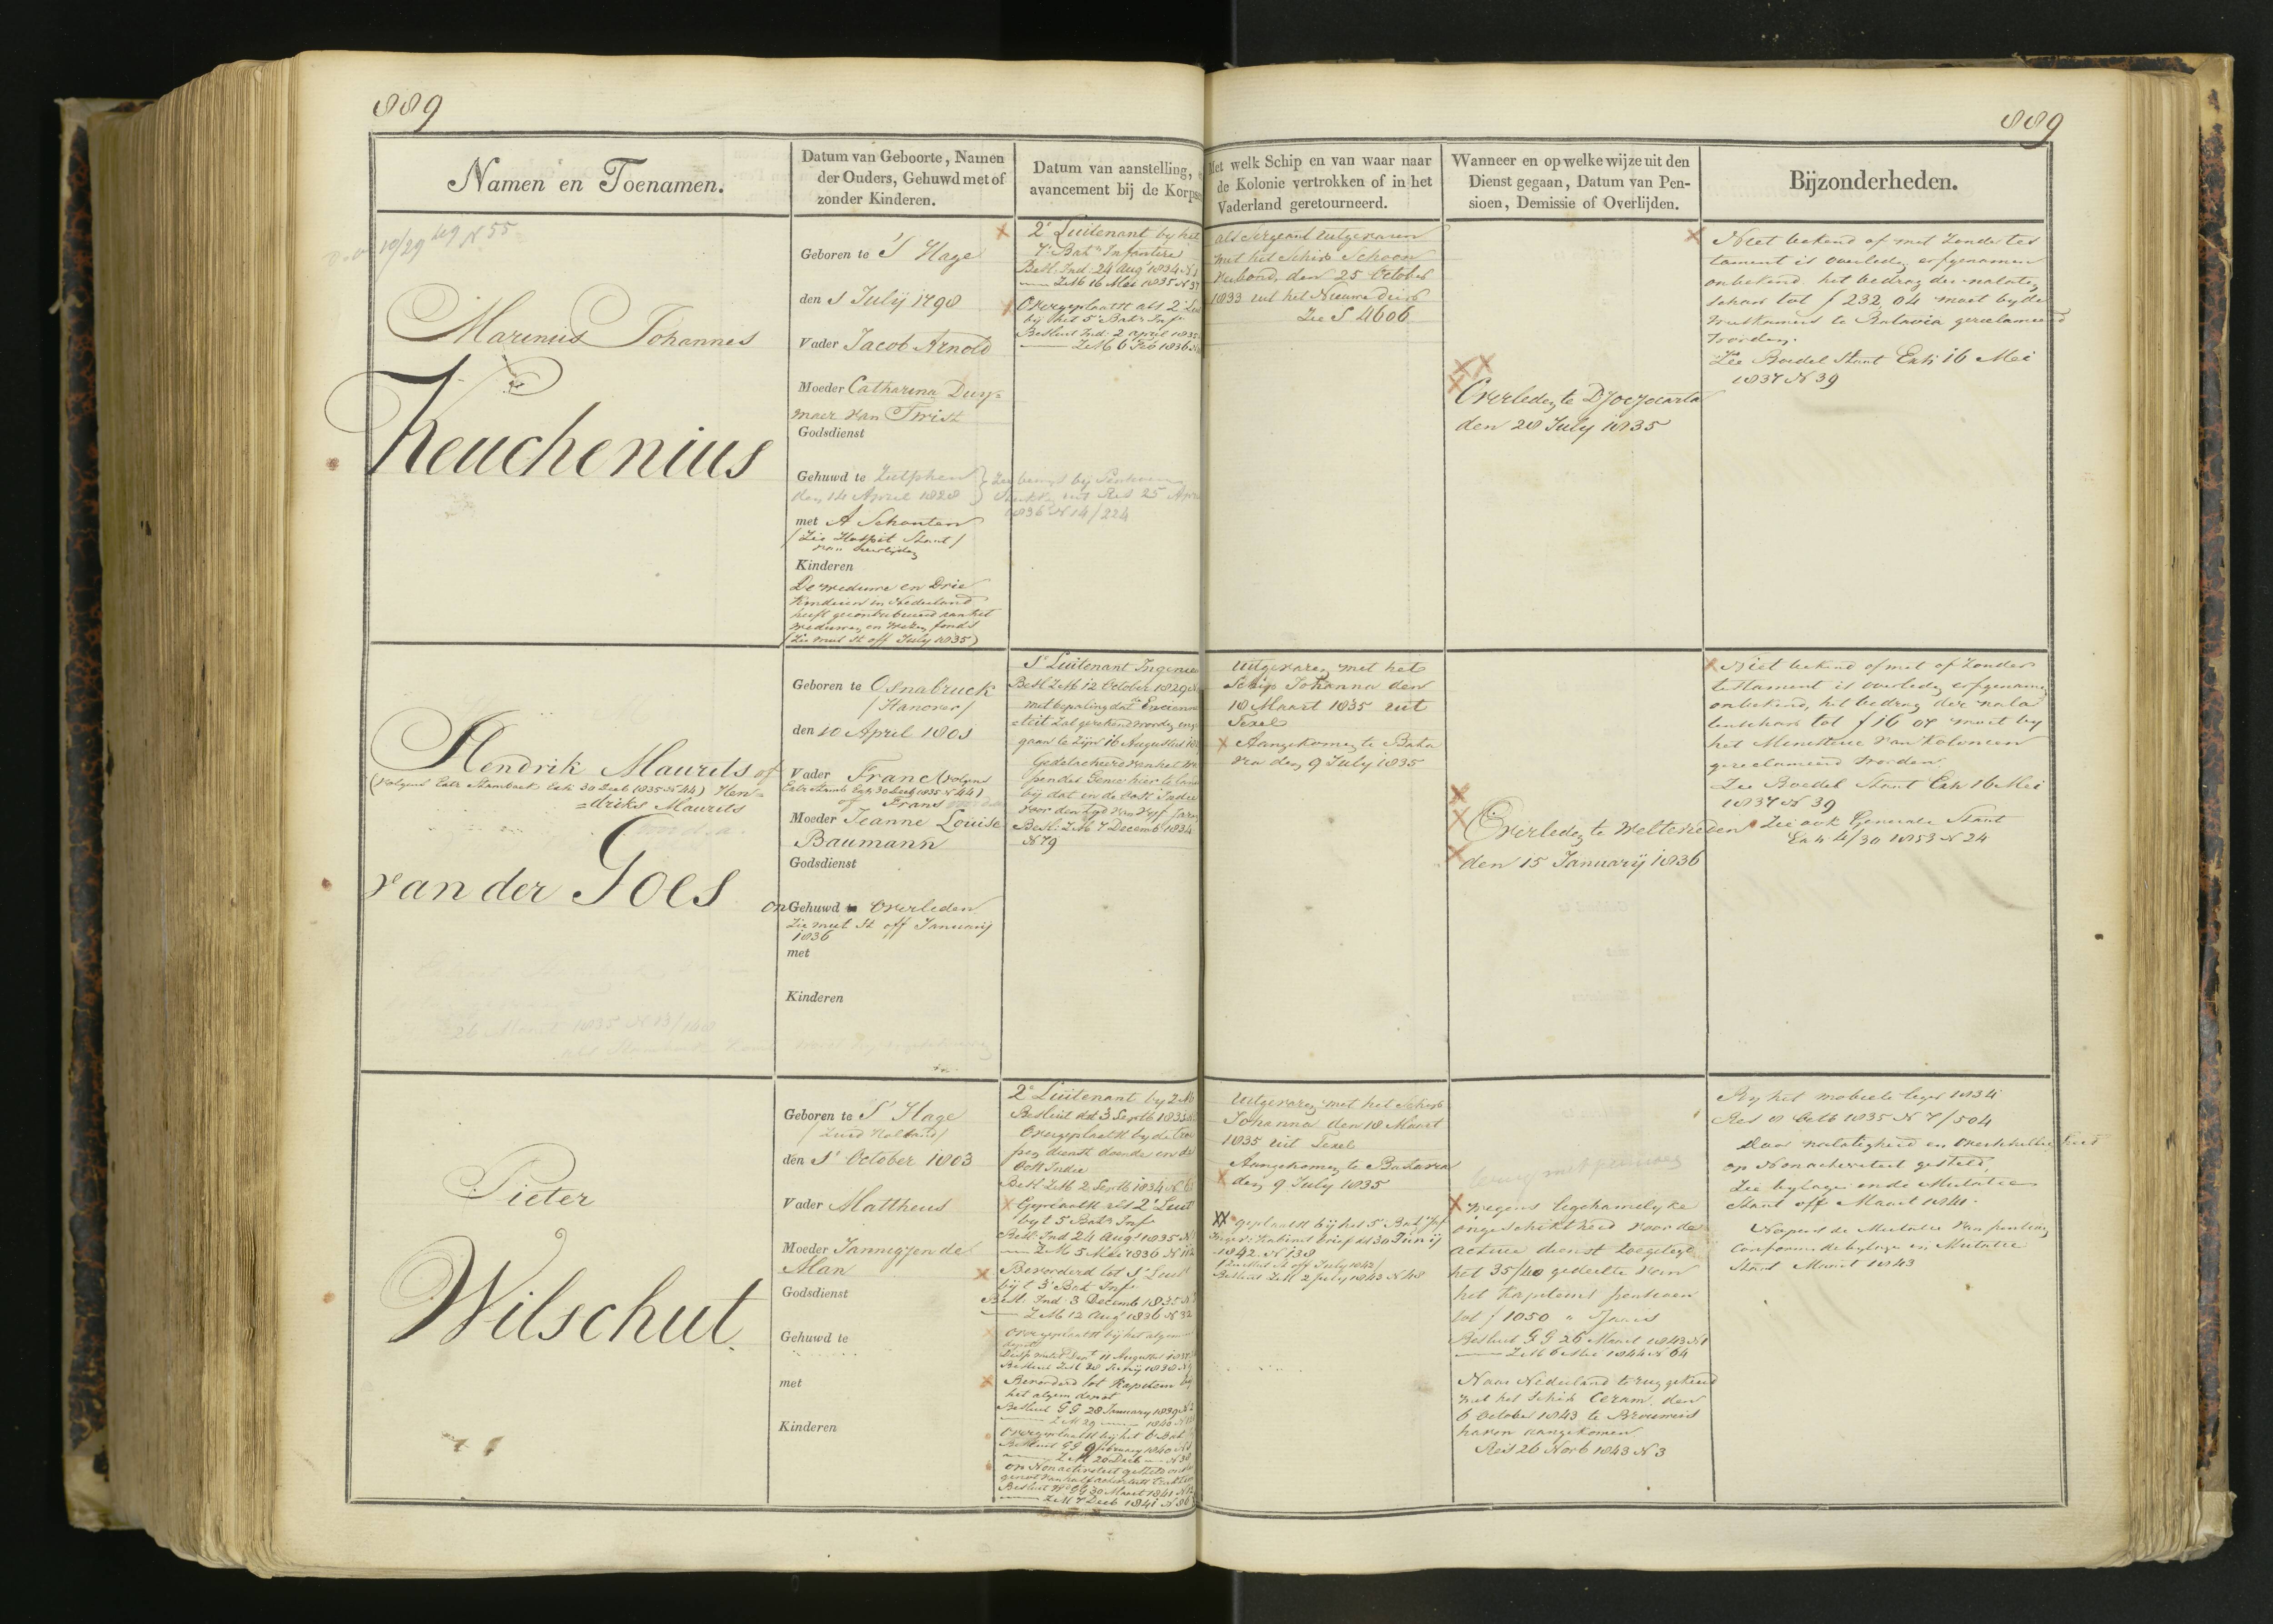 889
889
Namen en Toenamen.
Datum van Geboorte, Namen
der Ouders, Gehuwd met of
zonder Kinderen.
Datum van aanstelling,
avancement bij de Korps
Met welk Schip en van waar naar
de Kolonie vertrokken of in het
Vaderland geretourneerd.
Wanneer en op welke wijze uit den
Dienst gegaan, Datum van Pen-
sioen, Demissie of Overlijden.
Bijzonderheden.
Marinus Johannes
Keuchenius
Geboren te S' Hage
den 1 Julij 1798
Vader Jacob Arnold
Moeder Catharina Duy=
maer van Twist
Godsdienst
Gehuwd te Zutphen
den 14 April 1828
1836 N 14/224
met A Schouten
(Zie Hospit Staat)
van overlijden
Kinderen
De weduwe en Drie
Kinderen in Nederland
heeft gecontribueerd aan het
weduwen en weezen fonds
(Zie Mut St off July 1835)
2e Luitenant by het
7e Batn Infanterie
Besl. Ind 24 Augs 1834 N 1
ZM 16 Mei 1835 N 37
Overgeplaatst als 2e Lui
bij het 5e Batn Inf
Besluit Ind. 2 April 1835
ZM 6 Feb 1836 N
als Sergeant uitgevaren
met het Schip Schoon
verbond, den 25 October
1833 uit het Nieuwe Diep
Zie S 4606
Overleden te Djocjocarta
den 28 July 1835
Niet bekend of met zonder tes
tament is overleden erfgenamen
onbekend het bedrag der nalaten
schap tot f 232,04 moet by de
Weeskamer te Batavia gereclameerd
worden.
Zie Boedel Staat Exh 16 Mei
1837 N 39
Hendrik Maurits of
(volgens Extr Stamboek Exh 30 Decb 1835 N 44) Hen=
=driks Maurits
van der Goes
Geboren te Osnabruck
/Hanover/
den 10 April 1801
Vader Franc (volgens
Extr Stamb Exh 30 Decb 1835 N 44)
of Frans
Moeder Jeanne Louise
Baumann
Godsdienst
onGehuwd Overleden
Zie mut St off January
1836
met
Kinderen
1e Luitenant Ingenie
Besl ZM 12 October 1829 N
met bepaling dat Encienne
=teit zal gerekend worden inge
gaan te zijn 16 Augustus
Gedetacheerd van het Wa
pen der Genie hier te lande
bij dat in de Oost Indie
voor den tyd van vyf Jaren
Besl: ZM 7 Decemb 1834
N 79
Uitgevaren met het
Schip Johanna den
18 Maart 1835 uit
Texel
Aangekomen te Bata
via den 9 July 1835
Overleden te Weltevreden
den 15 January 1836
Niet bekend of met of zonder
testament is overleden erfgenamen
onbekend, het bedrag der nala
tenschap tot f 16 07 moet by
het Ministerie van Kolonien
gereclameerd worden
Zie Boedel Staat Exh 16 Mei
1837 N 39
Zie ook Generale Staat
Exh 4/30 1853 N 24
Pieter
Wilschut
Geboren te S' Hage
/Zuid Holland/
den 1 October 1803
Vader Mattheus
Moeder Jannigjen de
Man
Godsdienst
Gehuwd te
met
Kinderen
2e Luitenant by 2 Ab
Besluit dd 3 Septb 1833
Overgeplaatst by de troe
pen dienst doende in de
Oost Indie
Besl ZM 2 Septb 1834 N
Geplaatst als 2e Luit
by t 5e Batn Inf
Besl: Ind 24 Augs 1835 N
ZM 5 Mei 1836 N 112
Bevorderd tot 1e Luit
bij t 3e Bat Inf
Besl: Ind 3 Decemb 1835 N
ZM 12 Augs 1836 N 32
Overgeplaatst bij het algem
depot
Bevorderd tot Kapitein by
het algem depot
Besluit GG 28 January 1839 N 2
Overgeplaatst bij het 6e Bat
Besluit GG 9 February 1840 N
op Nonactiviteit gesteld
Besluit GG 30 Maart 1841 N
ZM 7 Decb 1841 N 86
Uitgevaren met het Schip
Johanna den 18 Maart
1835 uit Texel
Aangekomen te Batavia
den 9 July 1835
geplaatst bij het 5e Batn Inf
Inged: Kabinet brief dd 30 Junij
1842 N 138
Besluit ZM 2 July 1843 N 48
wegens ligchamelyke
ongeschiktheid voor de
actieve dienst toegelegd
het 35/40 gedeelte van
het Kapiteins pensioen
tot f 1050 " Jaars
Besluit GG 26 Maart 1843 N 1
ZM 6 Mei 1844 N 64
Naar Nederland teruggekeerd
met het Schip Ceram den
6 October 1843 te Brouwers
haven aangekomen
Res 26 Novb 1843 N 3
By het mobiele leger 1834
Res 8 Octb 1835 N 7/504
Door nalatigheid en
op Nonactiviteit gesteld,
Zie bylage in de Mutatie
Staat off Maart 1841.
Nopens de Mutatie van pensioen
Conform de bylage in Mutatie
Staat Maart 1843